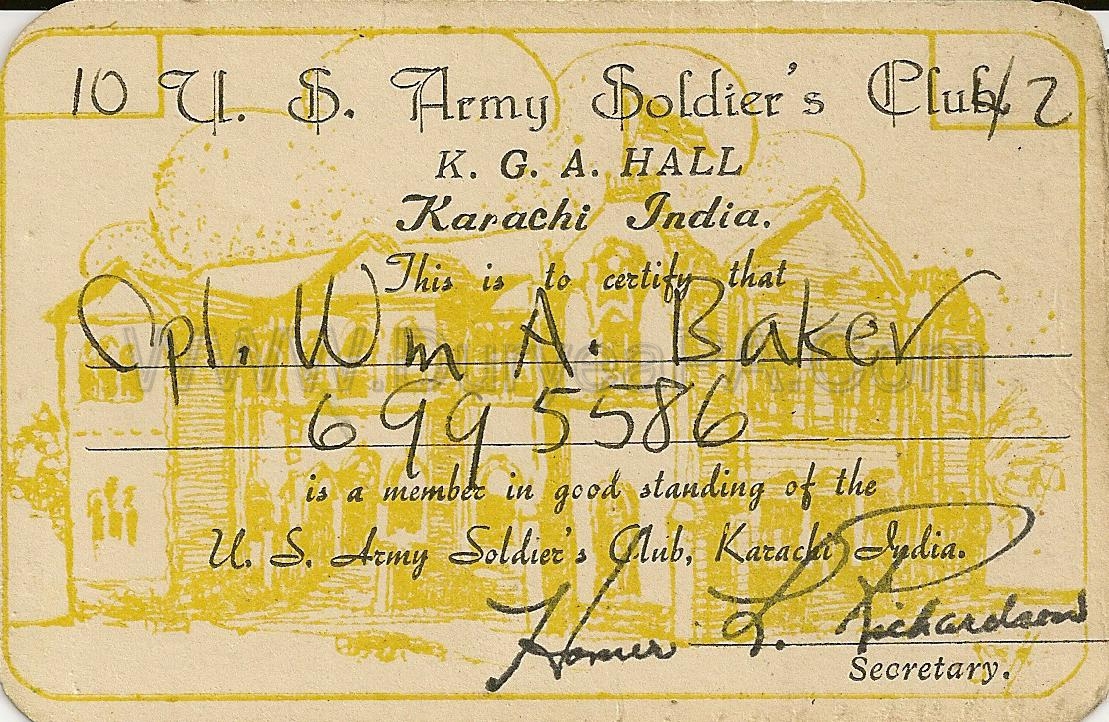 10 U. S. Army Soldier's Club 42
K. G. A. HALL
Karachi India.
This is to certify that
Cpl. Wm A. Baker
6995586
is a member in good standing of the
U. S. Army Soldier's Club, Karachi India.
Homer L. Richardson
Secretary.